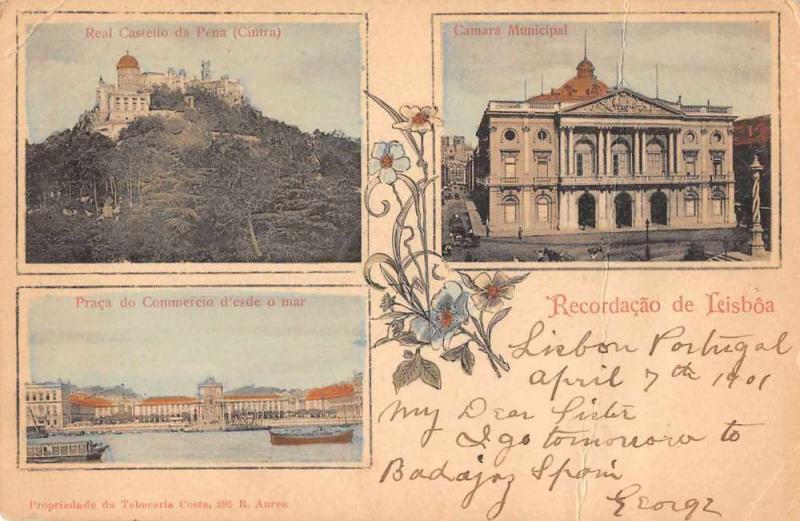 Real Castello da Pena (Cintra)
Camara Municipal
Praça do Commercio d'esde o mar
Recordação de Lisbôa
Lisbon Portugal
April 7th 1901
My Dear Sister
I go tomorrow to
Badajoz Spain
George
Propriedade da Tabacaria Costa, 295 R. Aurea